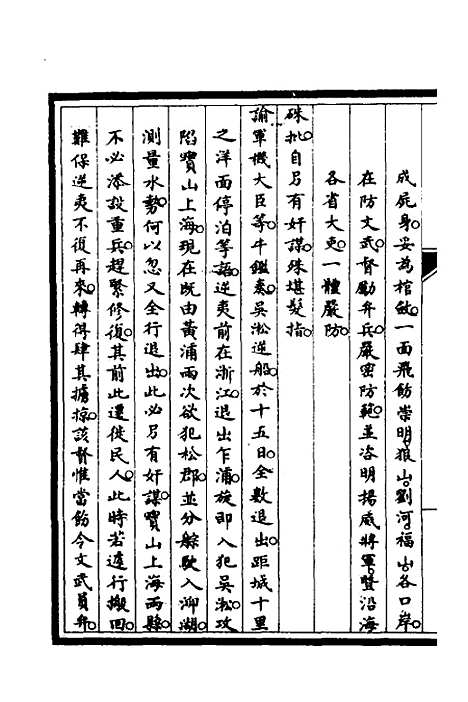 成屍身。妥為棺斂。一面飛飭崇明。狼山。劉河。福山。各口岸。
在防文武。督勵弁兵。嚴密防範。並咨明揚威將軍。暨沿海
各省大吏。一體嚴防。
硃批。自另有奸謀。殊堪髮指。
諭軍機大臣等。牛鑑奏。吳淞逆船。於十五日。全數退出。距城十里
之洋面停泊等語。逆夷前在浙江。退出乍浦。旋即入犯吳淞。攻
陷寶山上海。現在既由黃浦兩次欲犯松郡。並分䑸駛入泖湖。
測量水勢。何以忽又全行退出。此必另有奸謀。寶山上海兩縣。
不必添設重兵。趕緊修復。其前此遷徙民人。此時若遽行搬回。
難保逆夷不復再來。轉得肆其擄掠。該督惟當飭令文武員弁。